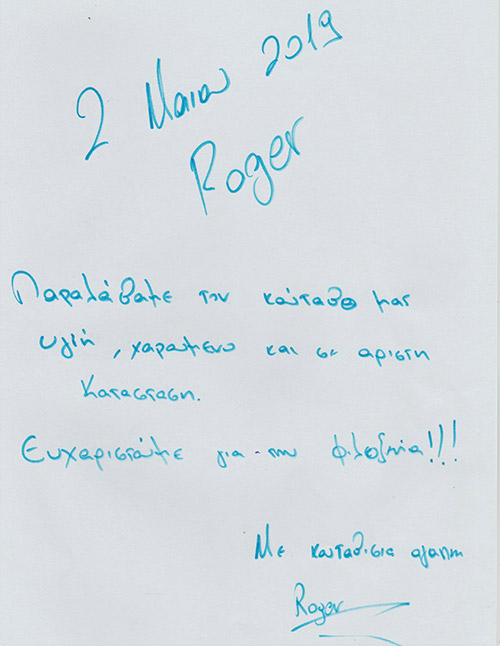 2 Μαιου 2019
Roger
Παραλάβαμε τον κούταβο μας
υγιή, χαρούμενο και σε αριστη
κατασταση.
Ευχαριστούμε για την φιλοξενία!!!
Με κουταβισια αγαπη
Roger